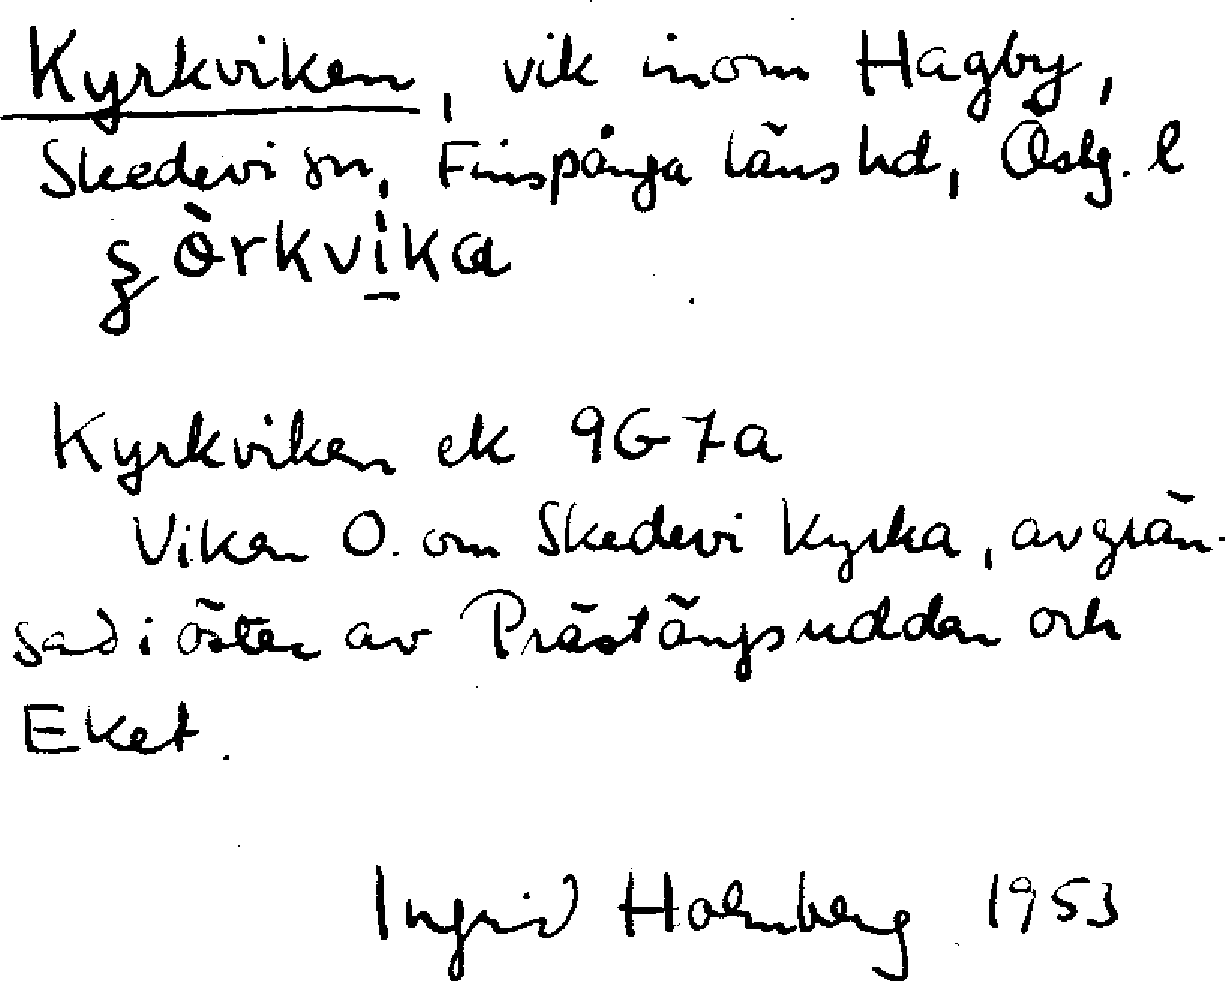 Kyrkviken, vik inom Hagby,
Skedevi sn, Finspånga läns hd, Östg. l
ʒ ὸrkvi̱ka
Kyrkviken ek 9G7a
Viken O. om Skedevi kyrka, avgrän-
sad i öster av Prästängsudden och
Eket.
Ingrid Holmberg 1953